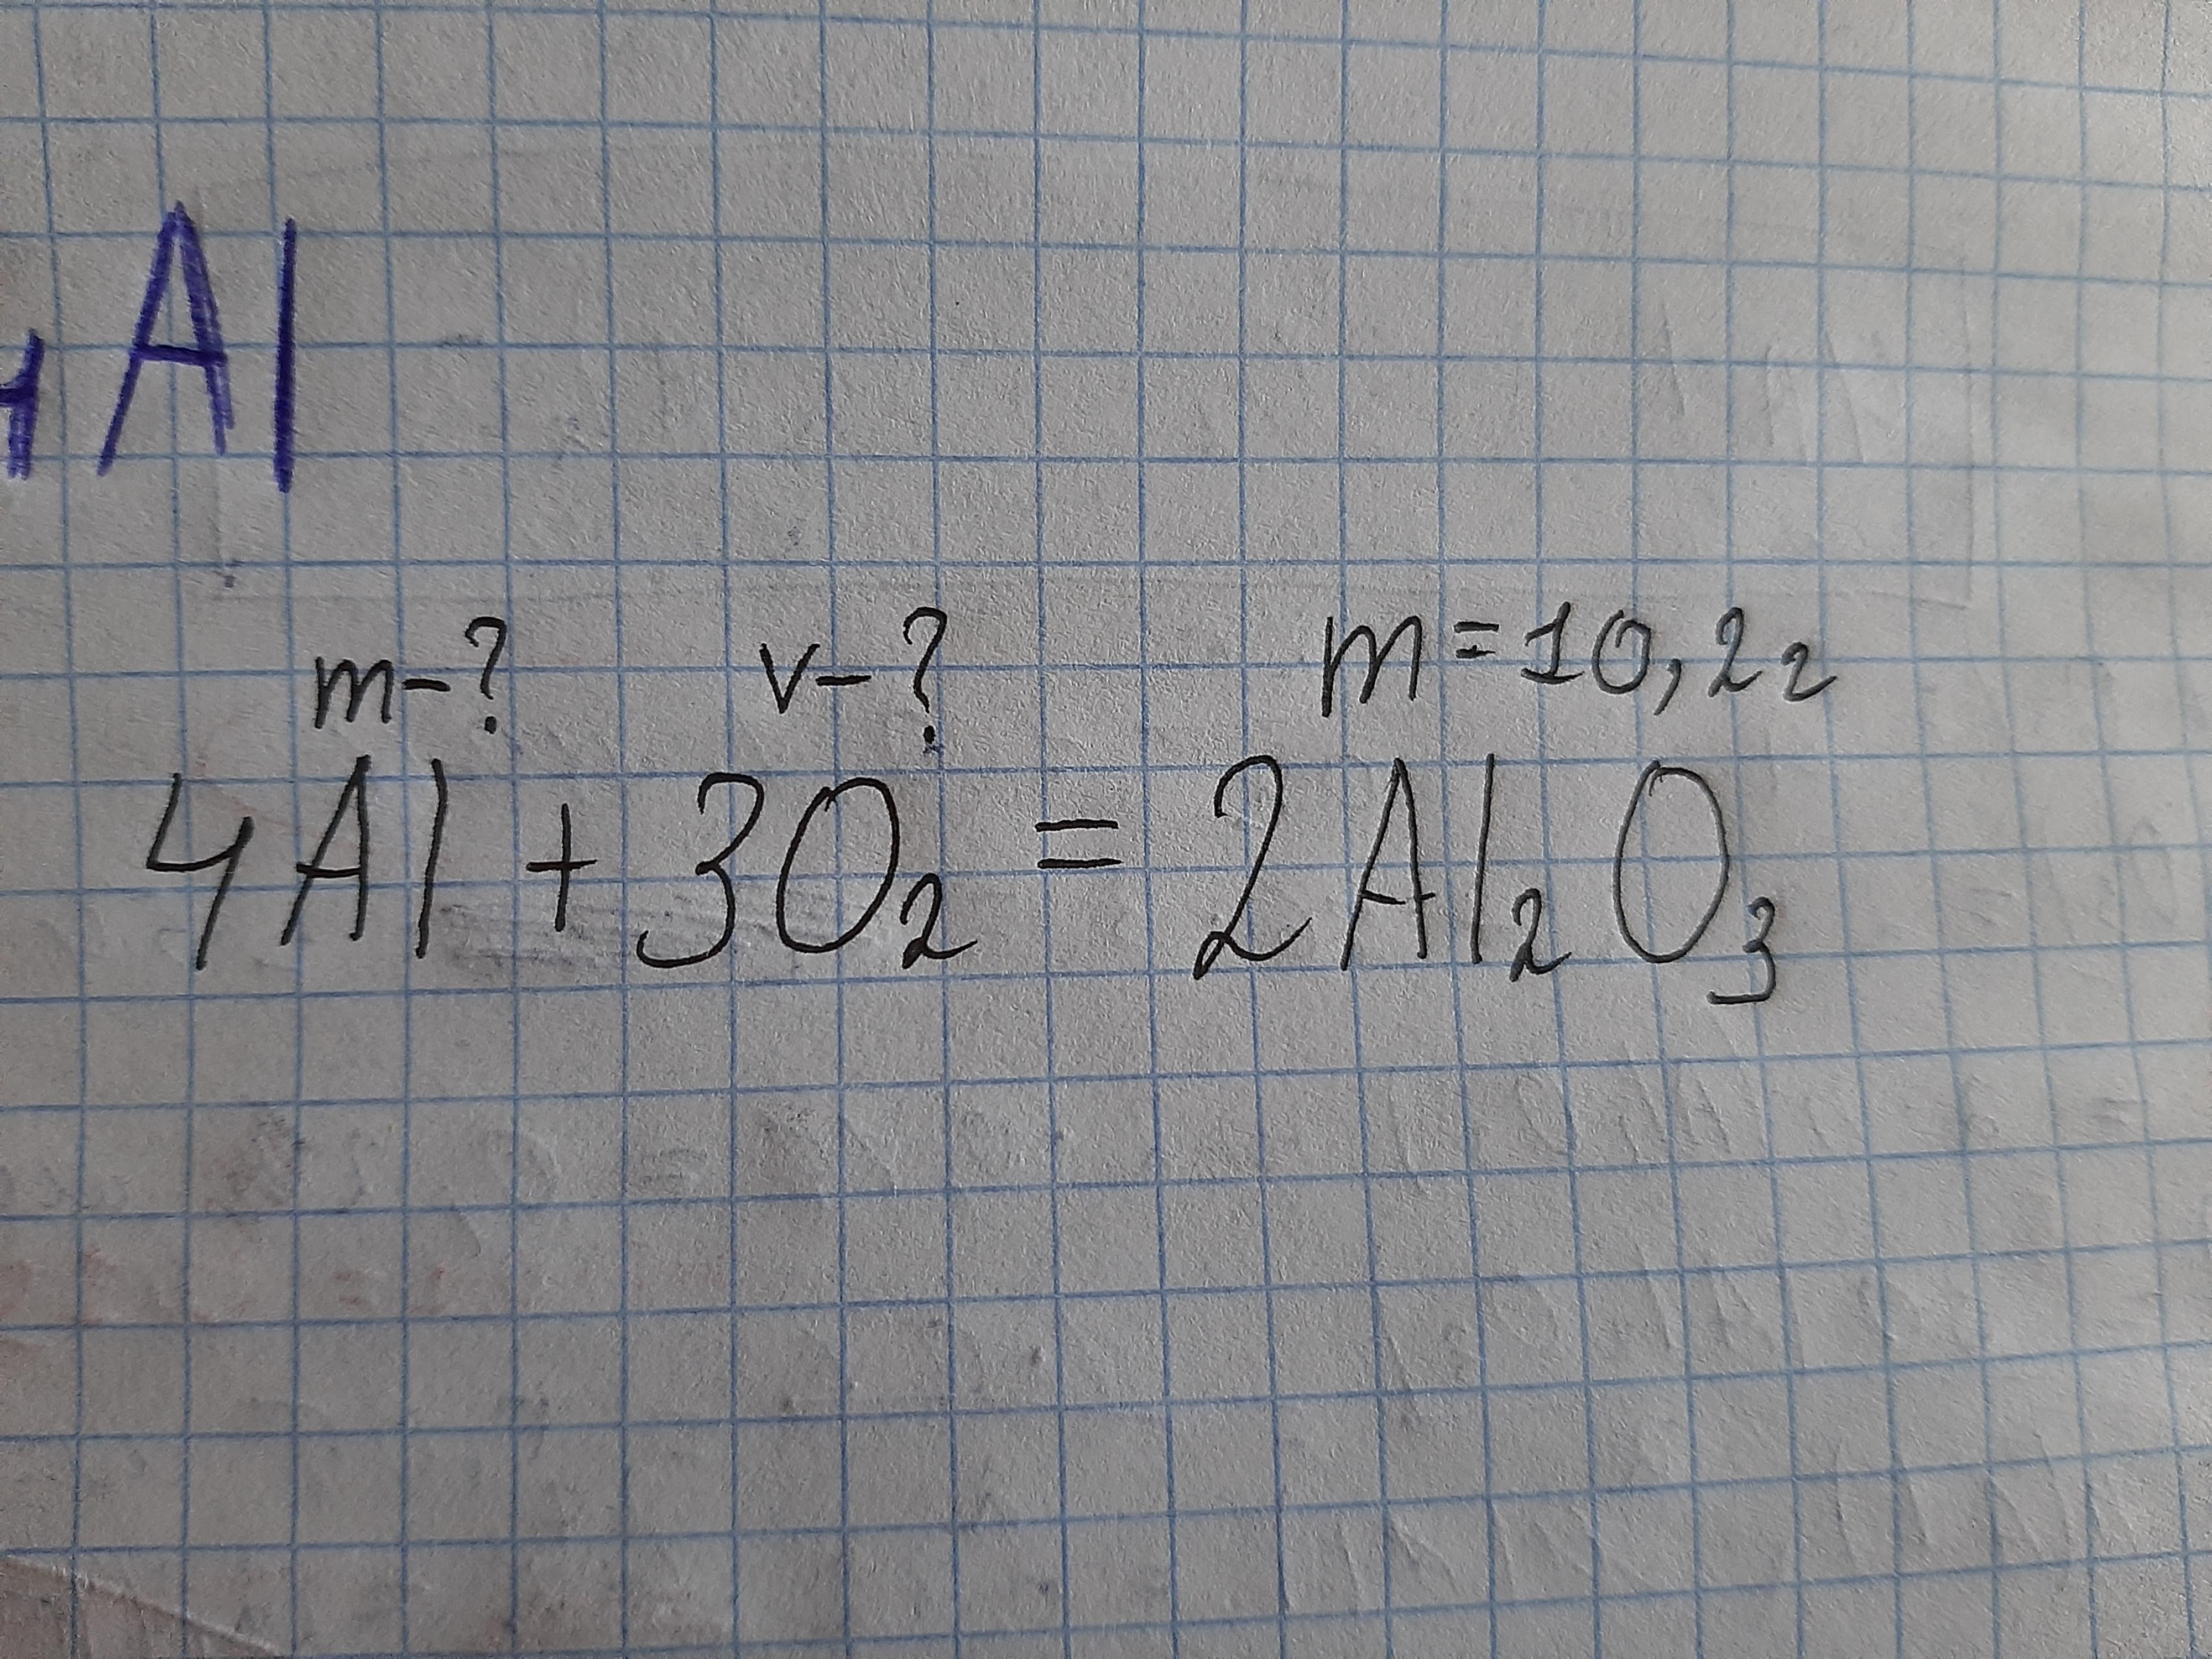 4Al
m-? v-? m=10,2г
4Al + 3O₂ = 2Al₂O₃